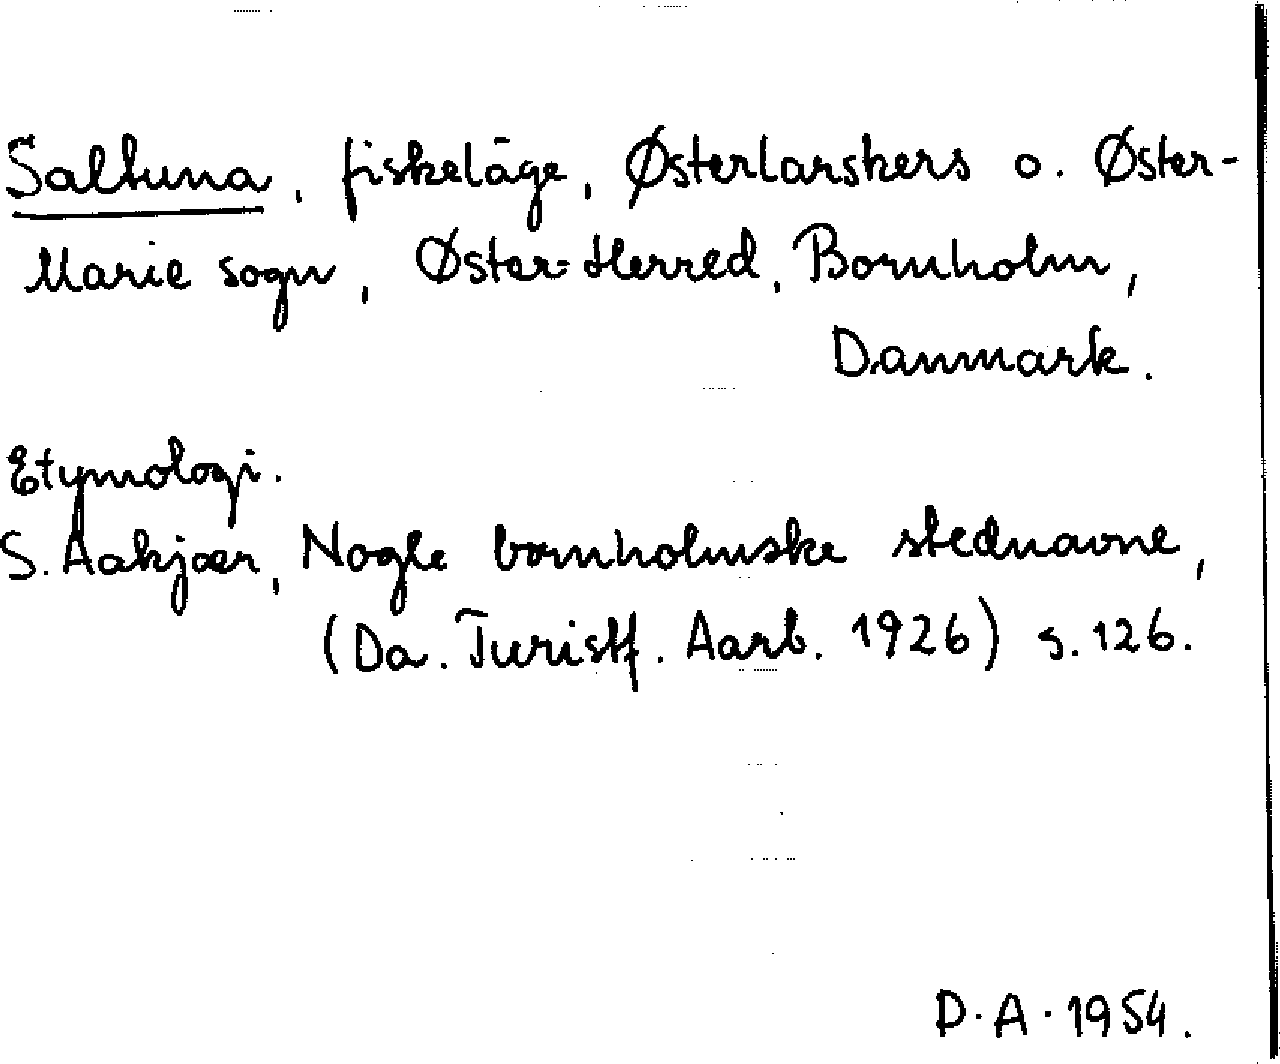 Saltuna, fiskeläge, Østerlarskers o. Øster-
Marie sogn, Øster-Herred, Bornholm,
Danmark.
Etymologi.
S. Aakjær, Nogle bornholmske stednavne,
(Da. Turistf. Aarb. 1926) s. 126.
D.A. 1954.